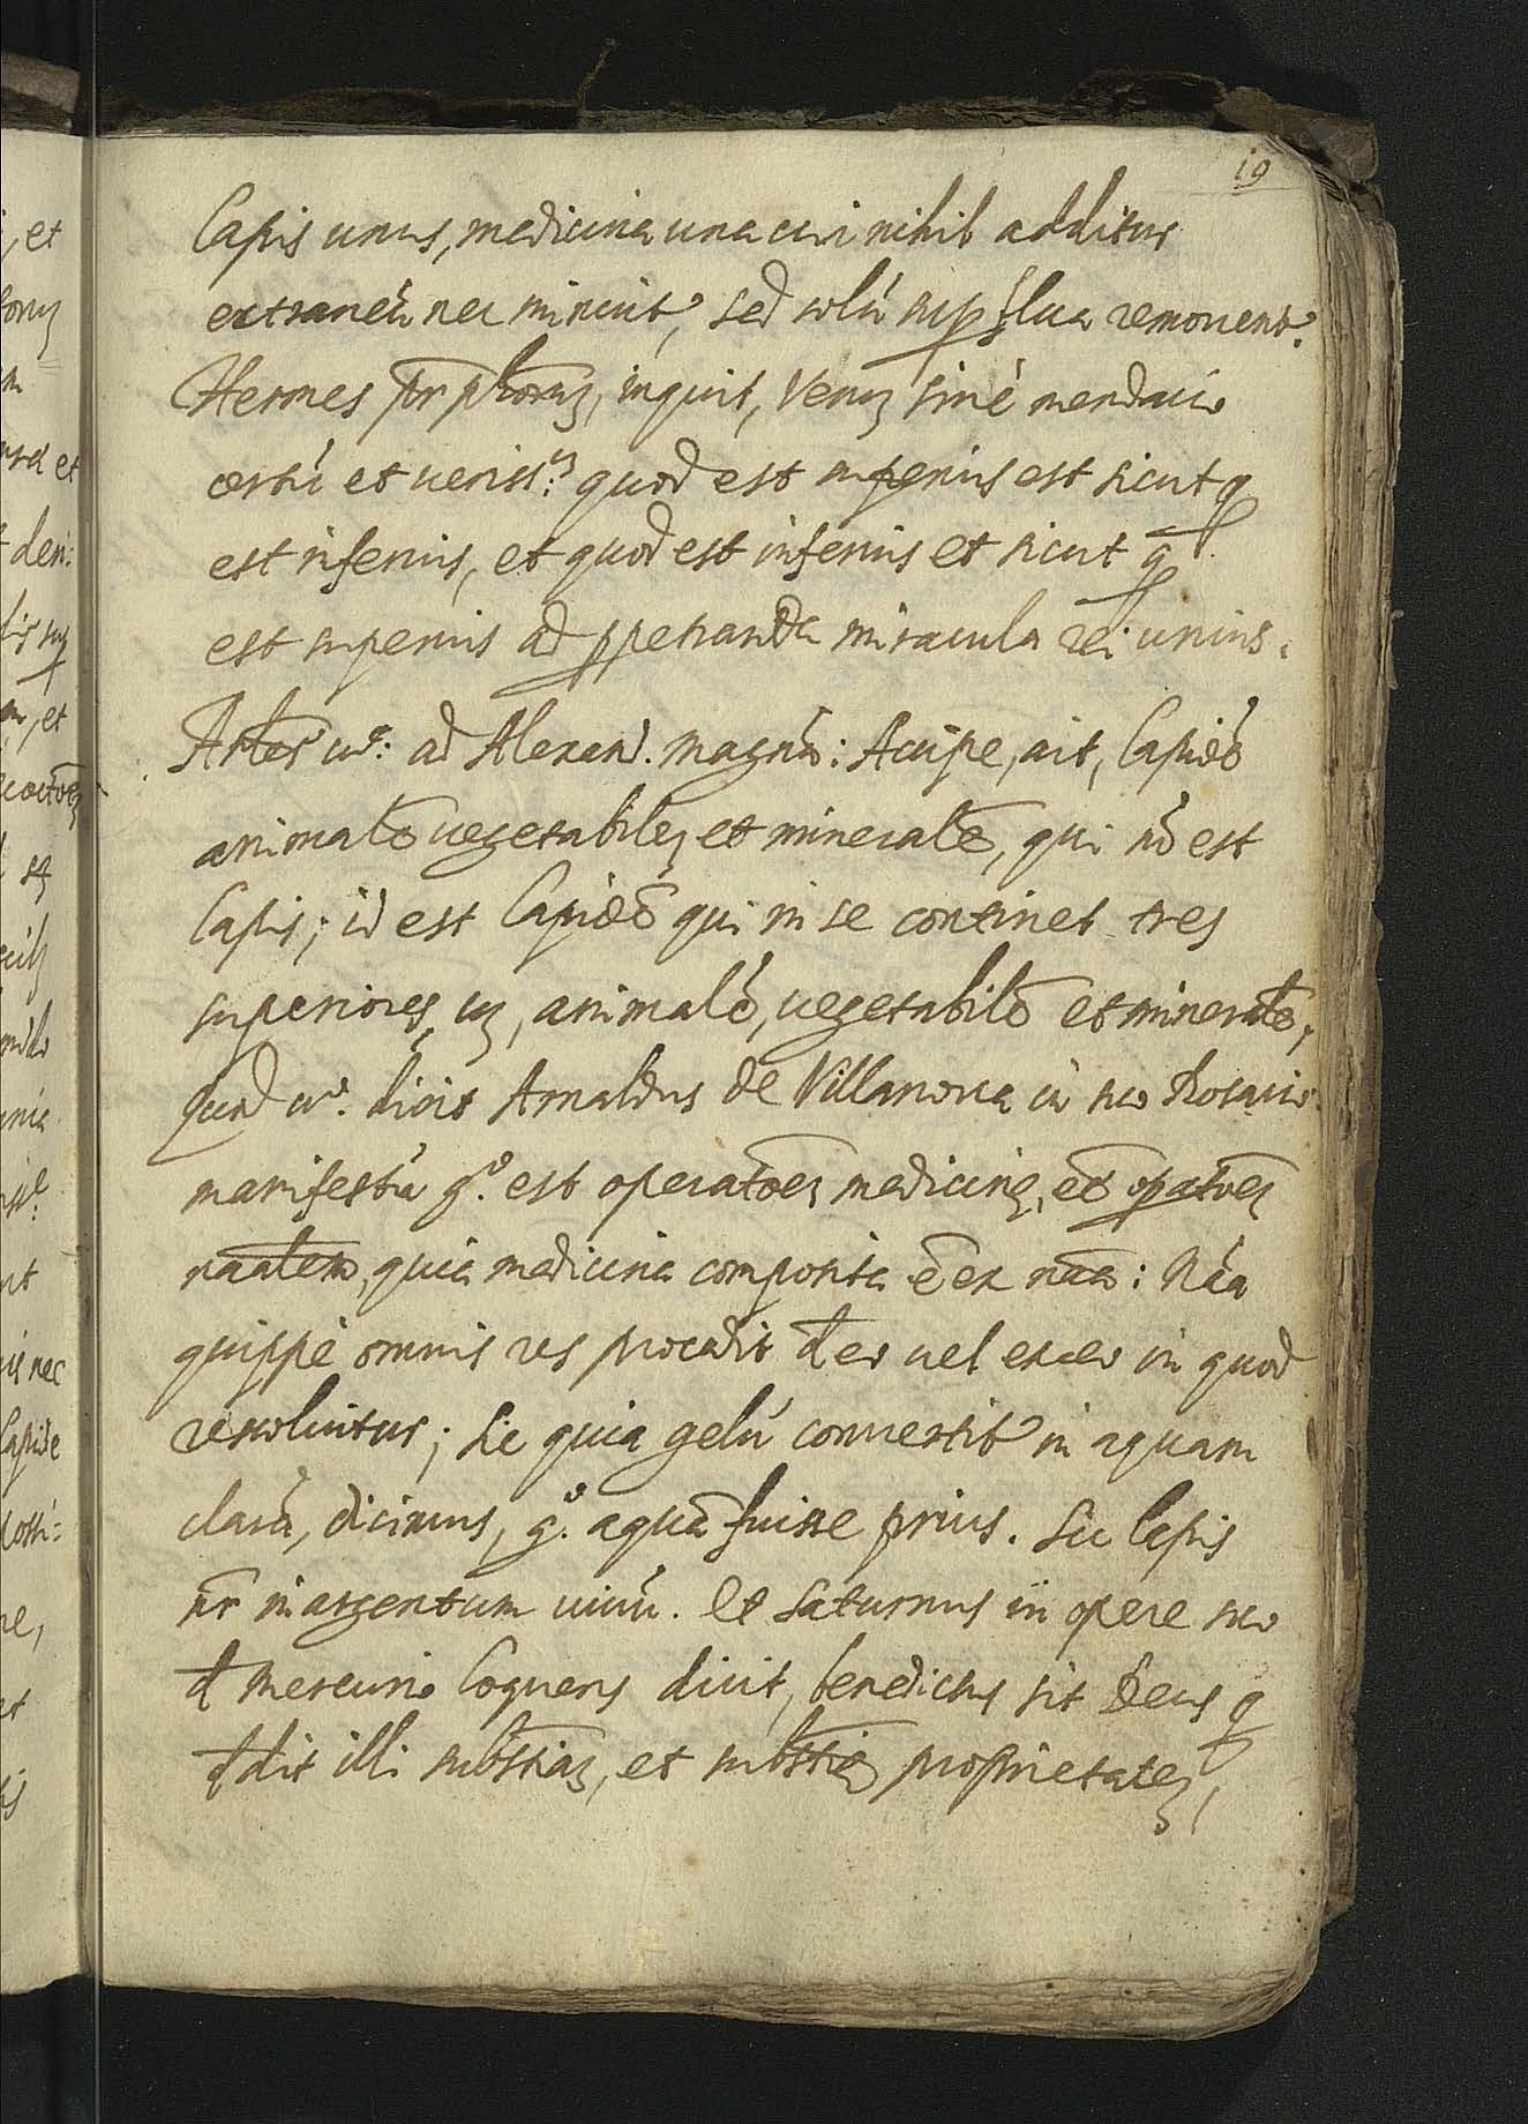 19
Lapis unus, medicina una cui nihil additur
extraneú nec minuit, sed solú supflua remouent.
Hermes pr phorum, inquit, Verum sinè mendacio
certú et veriss.m quod est superius est sicut q
est inferius, et quod est inferius et sicut q
est superius ad ppetranda miracula rei unius.
Artes uo: ad Alexand. magnú: Accipe, ait, Lapidē
animalē uegetabilem et mineralē, qui nō est
Lapis; id est Lapidē qui in se continet tres
superiores, uz, animalē, uegetabilē et mineralē,
quod uo. dicit Arnaldus de Villanova in suo Rosario
manifestú go. est operatōem medicinę, eē opatōem
naalem, quia medicina composita ē ex naa: Náa
quippè omnis res procedit d eo uel ex eo in quod
resoluitur; Sic quia gelú conuertit in aquam
clarā, dicimus, go. aquā fuisse prius. Sic lapis
nr in argentum uiuú. Et Saturnus in opere suo
d mercurio loquens dicit, benedictus sit Deus q
ddit illi substiam, et substię proprietatem,
et
et
et
nec
Lapide
et